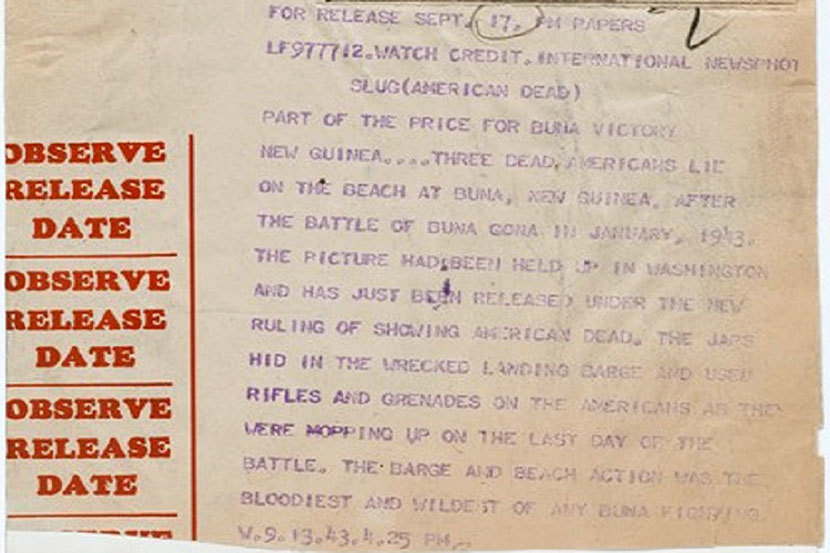 FOR RELEASE SEPT. 17. PM PAPERS
LF977712.WATCH CREDIT.INTERNATIONAL NEWSPHOT
SLUG(AMERICAN DEAD)
PART OF THE PRICE FOR BUNA VICTORY
NEW GUINEA....THREE DEAD AMERICANS LIE
ON THE BEACH AT BUNA, NEW GUINEA, AFTER
THE BATTLE OF BUNA GONA IN JANUARY, 1943.
THE PICTURE HAD BEEN HELD UP IN WASHINGTON
AND HAS JUST BEEN RELEASED UNDER THE NEW
RULING OF SHOWING AMERICAN DEAD. THE JAPS
HID IN THE WRECKED LANDING BARGE AND USED
RIFLES AND GRENADES ON THE AMERICANS AS THEY
WERE MOPPING UP ON THE LAST DAY OF THE
BATTLE. THE BARGE AND BEACH ACTION WAS THE
BLOODIEST AND WILDEST OF ANY BUNA FIGHTING.
W.9.13.43.4.25 PM.
OBSERVE
RELEASE
DATE
OBSERVE
RELEASE
DATE
OBSERVE
RELEASE
DATE